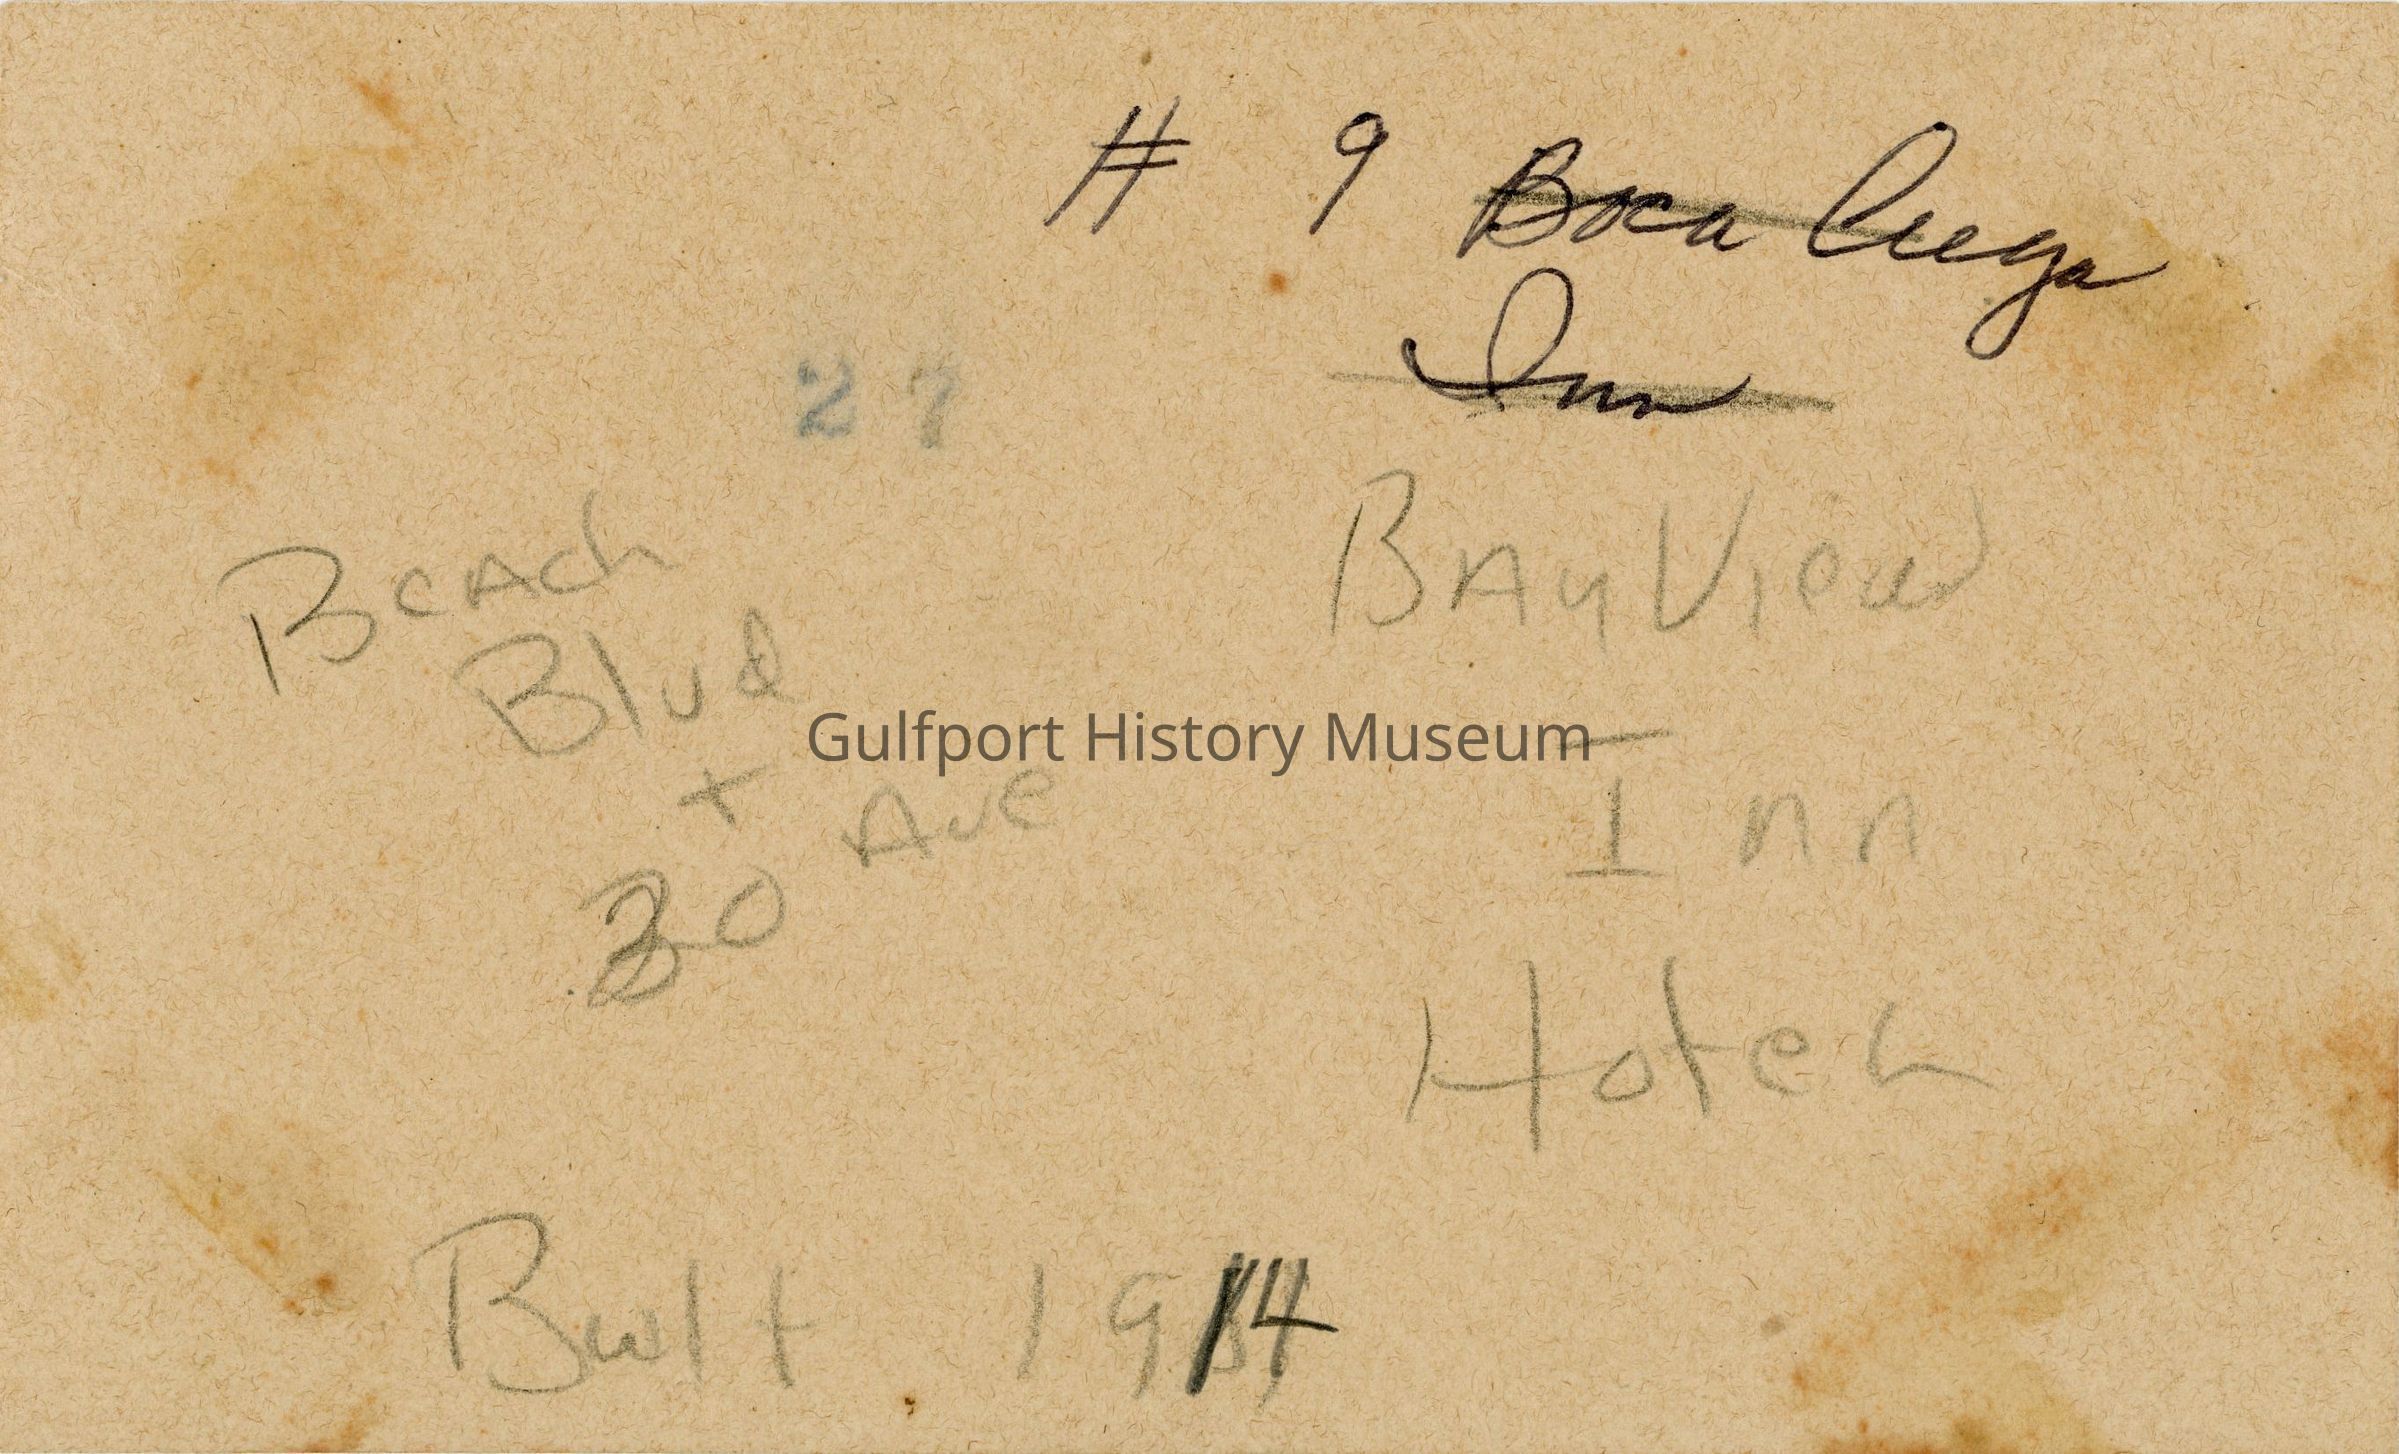 # 9 Boca Ciega
Inn
27
Beach
Blvd
+
30 Ave
BayView
Inn
Hotel
Gulfport History Museum
Built 1914